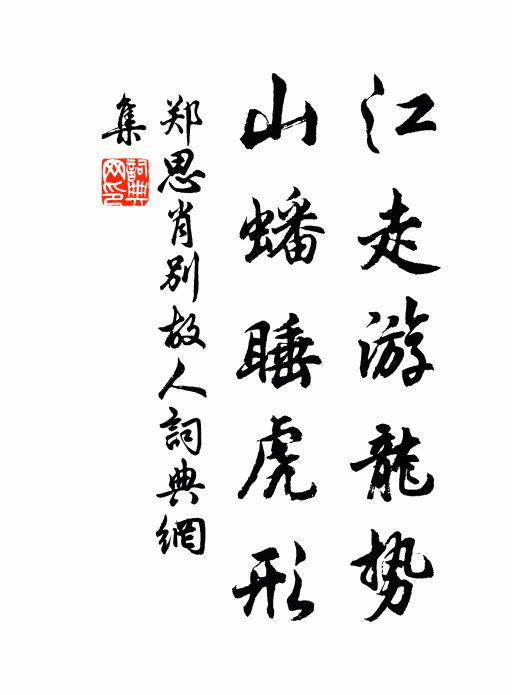 江走游龍势
山蟠睡虎形
郑思肖别故人詞典網
集
詞典
网印